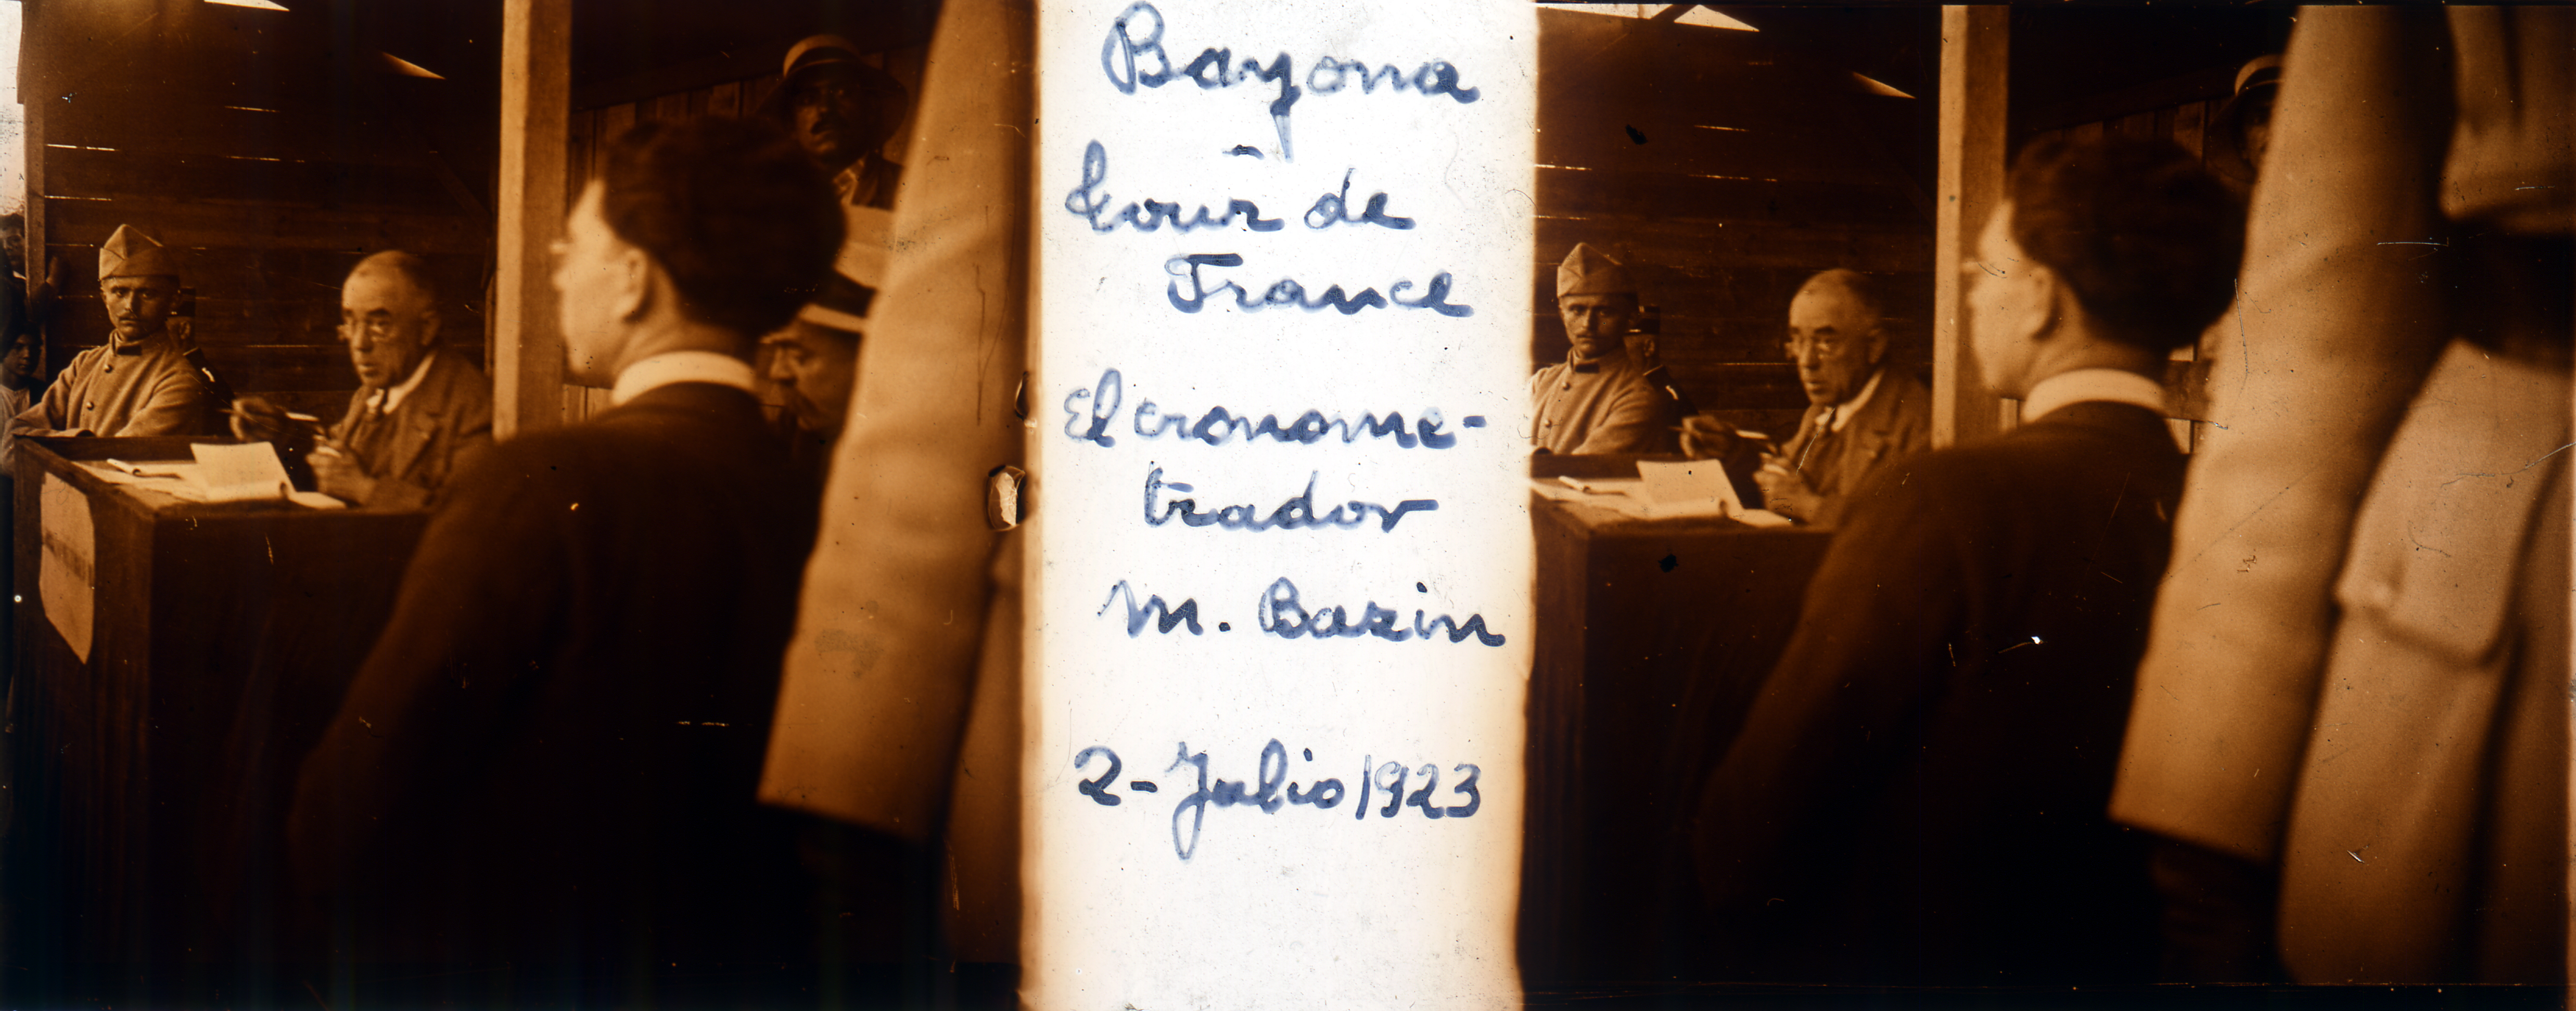 Bayona
Tour de
France
El cronome-
trador
M. Bazin
2-Julio 1923